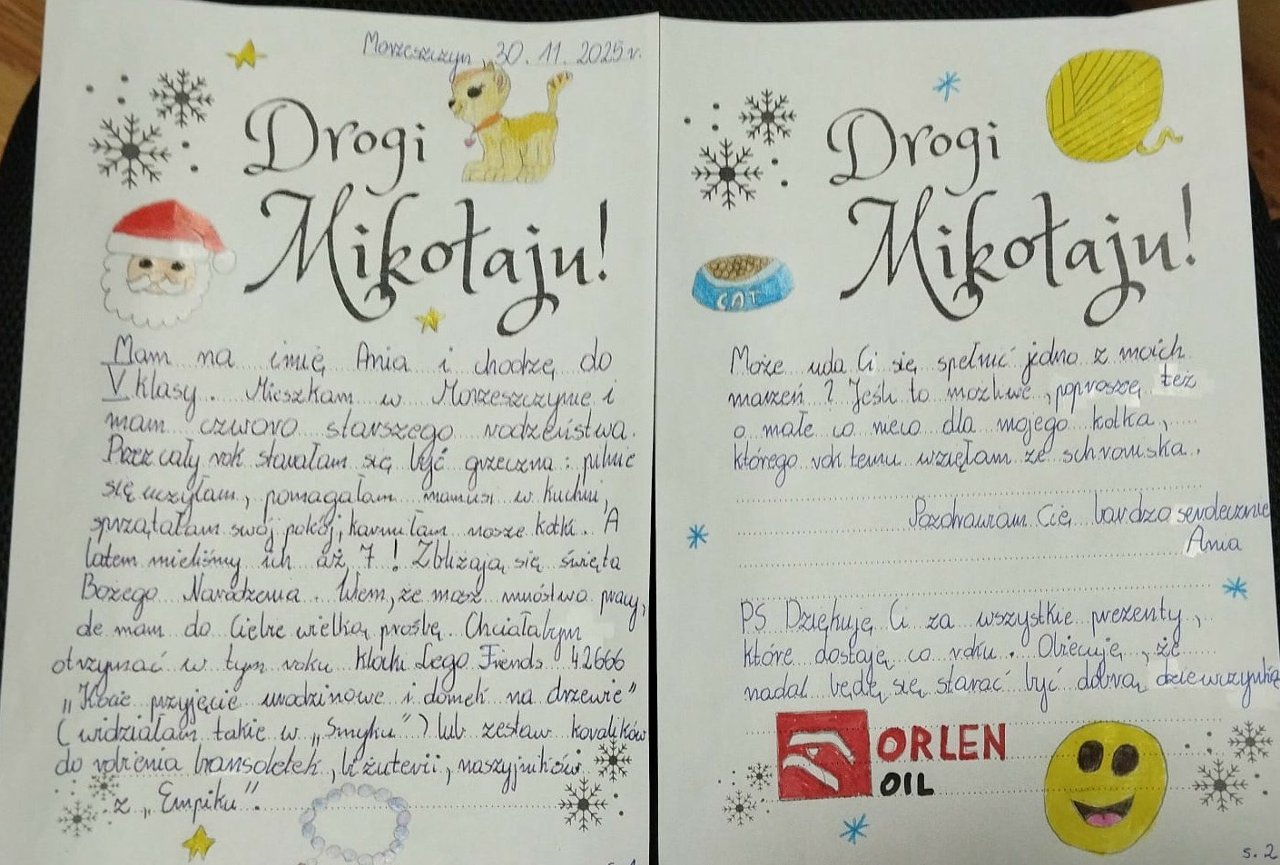 Morzeszczyn 30.11.2025 r.
Drogi
Mikołaju!
Mam na imię Ania i chodzę do
V klasy. Mieszkam w Morzeszczynie i
mam czworo starszego rodzeństwa.
Przez cały rok starałam się być grzeczna: pilnie
się uczyłam, pomagałam mamusi w kuchni,
sprzątałam swój pokój, karmiłam nasze kotki. A
latem mieliśmy ich aż 7! Zbliżają się święta
Bożego Narodzenia. Wiem, że masz mnóstwo pracy,
ale mam do Ciebie wielką prośbę. Chciałabym
otrzymać w tym roku klocki Lego Friends 42666
„Kocie przyjęcie urodzinowe i domek na drzewie"
(widziałam takie w „Smyku") lub zestaw koralików
do robienia bransoletek, biżuterii, naszyjników
z „Empiku".
Drogi
Mikołaju!
CAT
Może uda Ci się spełnić jedno z moich
marzeń? Jeśli to możliwe, poproszę też
o małe co nieco dla mojego kotka,
którego rok temu wzięłam ze schroniska.
Pozdrawiam Cię bardzo serdecznie
Ania
PS Dziękuję Ci za wszystkie prezenty,
które dostaję co roku. Obiecuję, że
nadal będę się starać być dobrą dziewczynką
ORLEN
OIL
s. 2